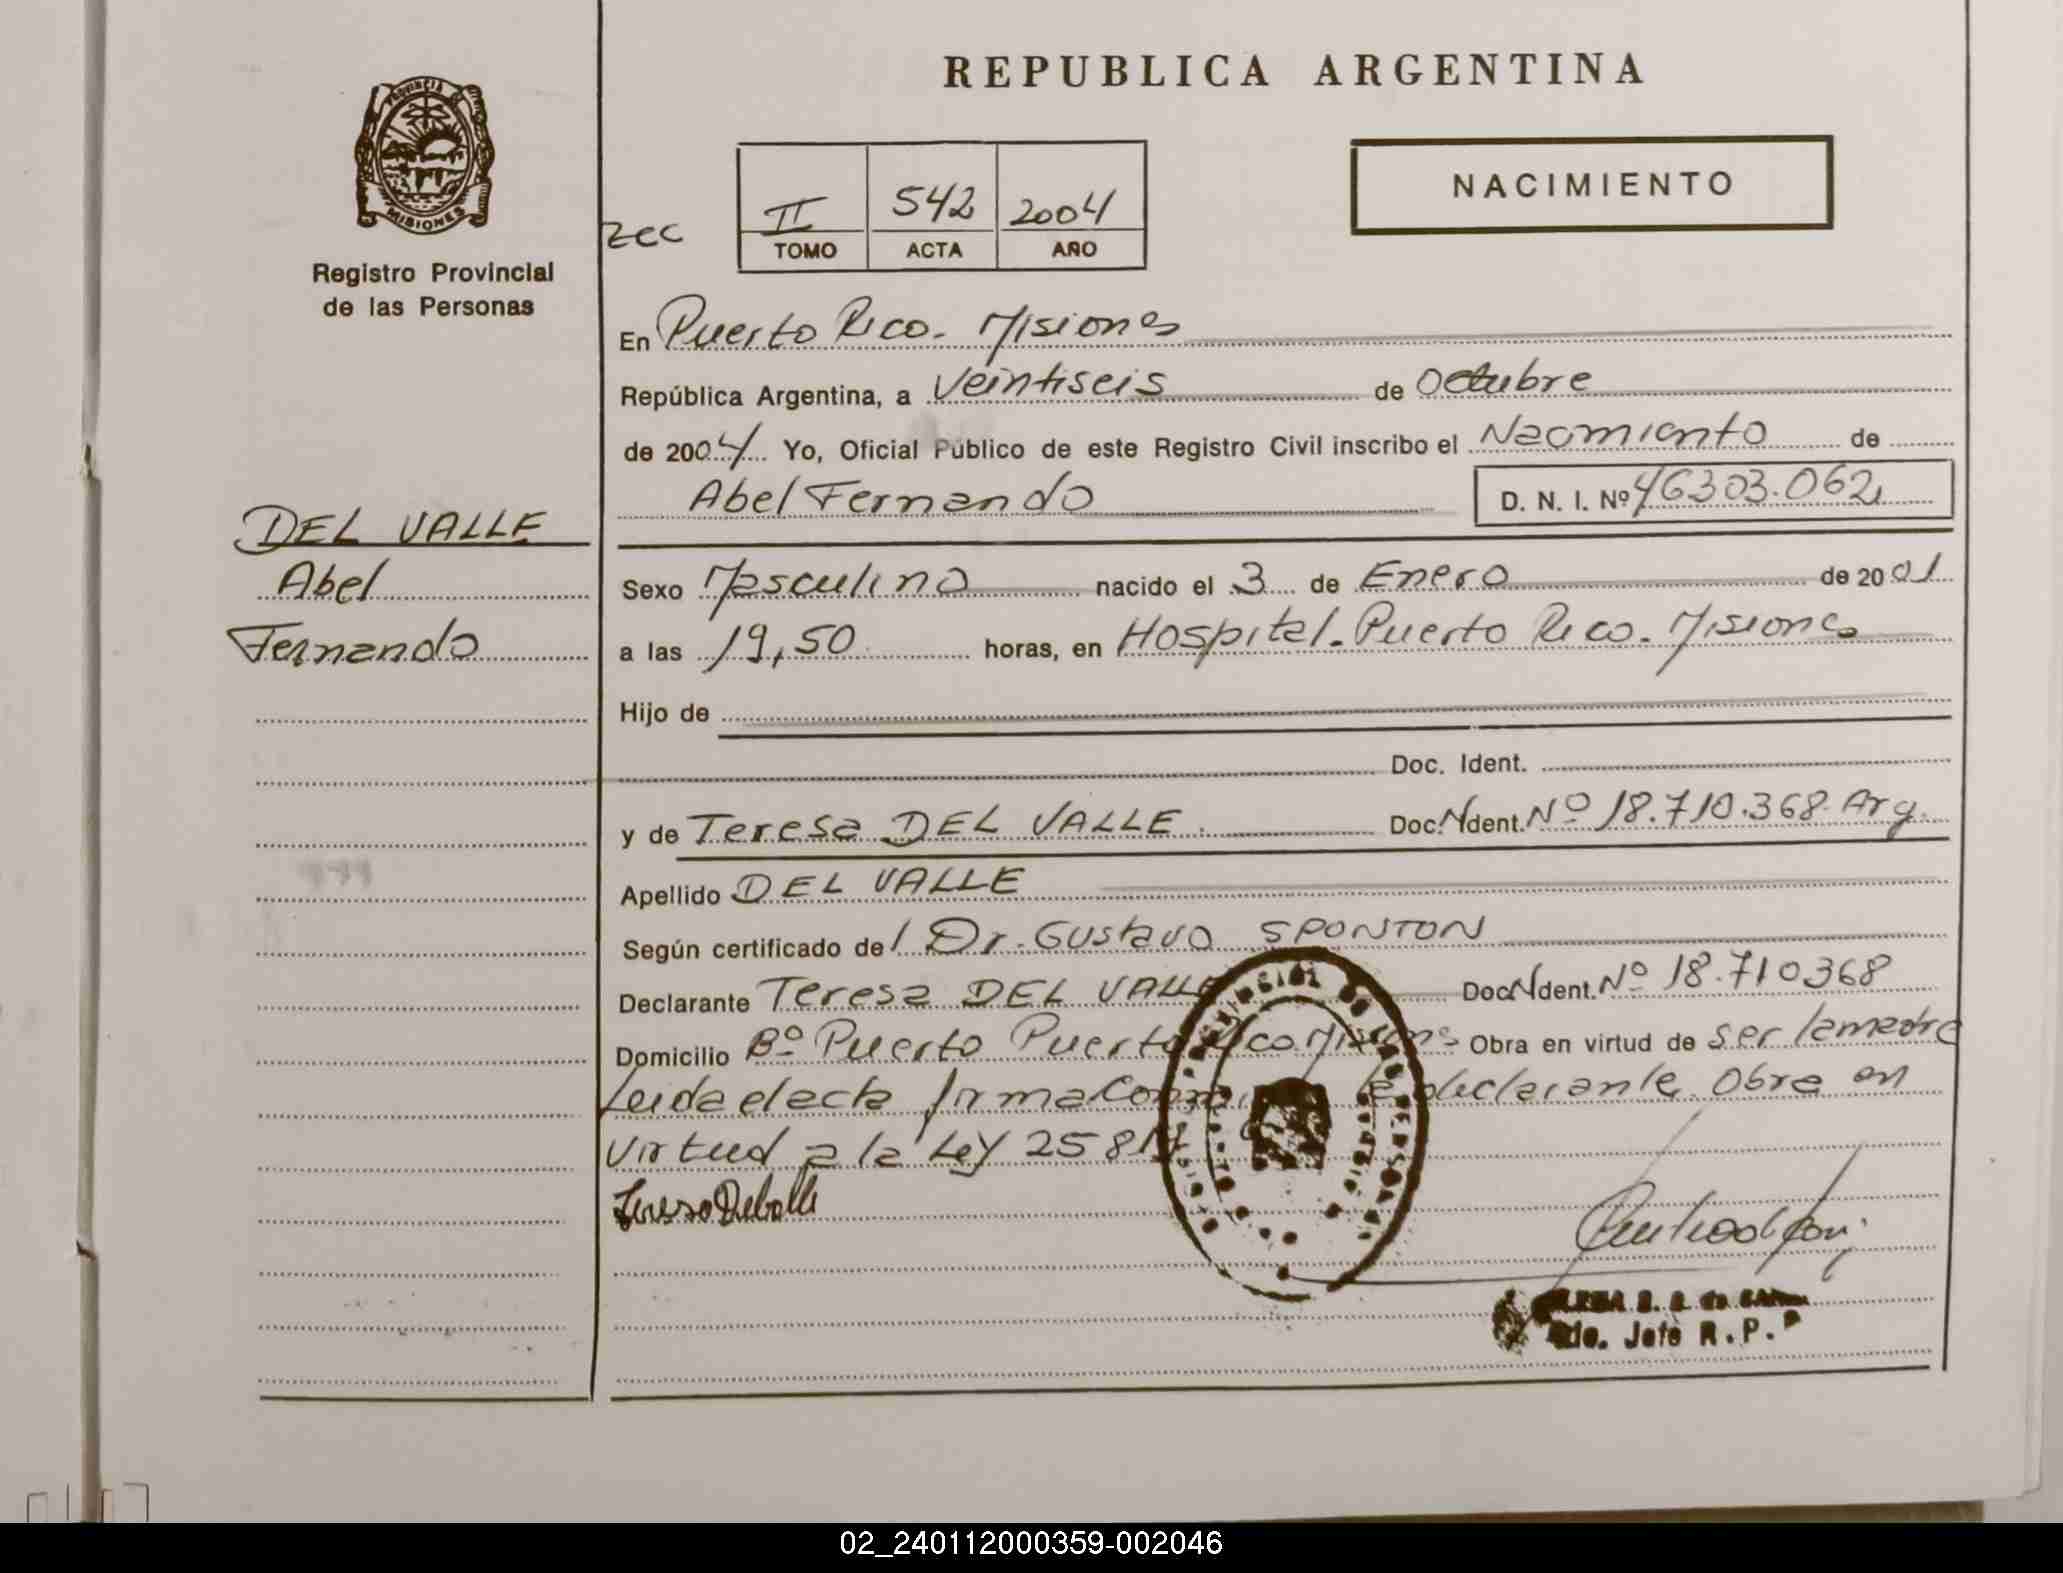 REPUBLICA ARGENTINA
PROVINCIA DE
MISIONES
Registro Provincial
de las Personas
NACIMIENTO
II 542 2004
TOMO ACTA AÑO
En Puerto Rico. Misiones
República Argentina, a Veintiseis de Octubre
de 2004 Yo, Oficial Público de este Registro Civil inscribo el Nacimiento de
Abel Fernando D. N. I. Nº 46303.062
DEL VALLE
Abel
Fernando
Sexo Masculino nacido el 3 de Enero de 2001
a las 19,50 horas, en Hospital. Puerto Rico. Misiones
Hijo de
Doc. Ident.
y de Teresa DEL VALLE Doc. Ident. Nº 18.710.368 Arg.
Apellido DEL VALLE
Según certificado del Dr. Gustavo SPONTON
Declarante Teresa DEL VALLE Doc. Ident. Nº 18.710368
Domicilio Bº Puerto Puerto Rico. Misiones Obra en virtud de ser la madre
Leida el acta firma conmigo la declarante. Obra en
virtud a la Ley 25819
Jefe R.P.P
02_240112000359-002046